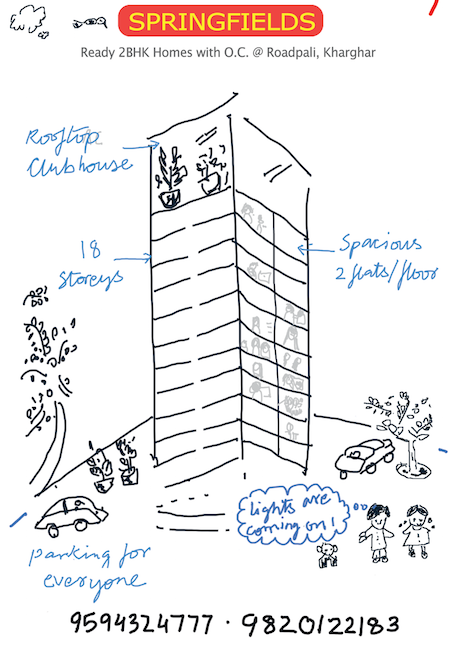 SPRINGFIELDS
Ready 2BHK Homes with O.C. @ Roadpali, Kharghar
Rooftop
Clubhouse
18
Storeys
Spacious
2 flats/floor
Lights are
coming on!
parking for
everyone
9594324777 · 9820122183